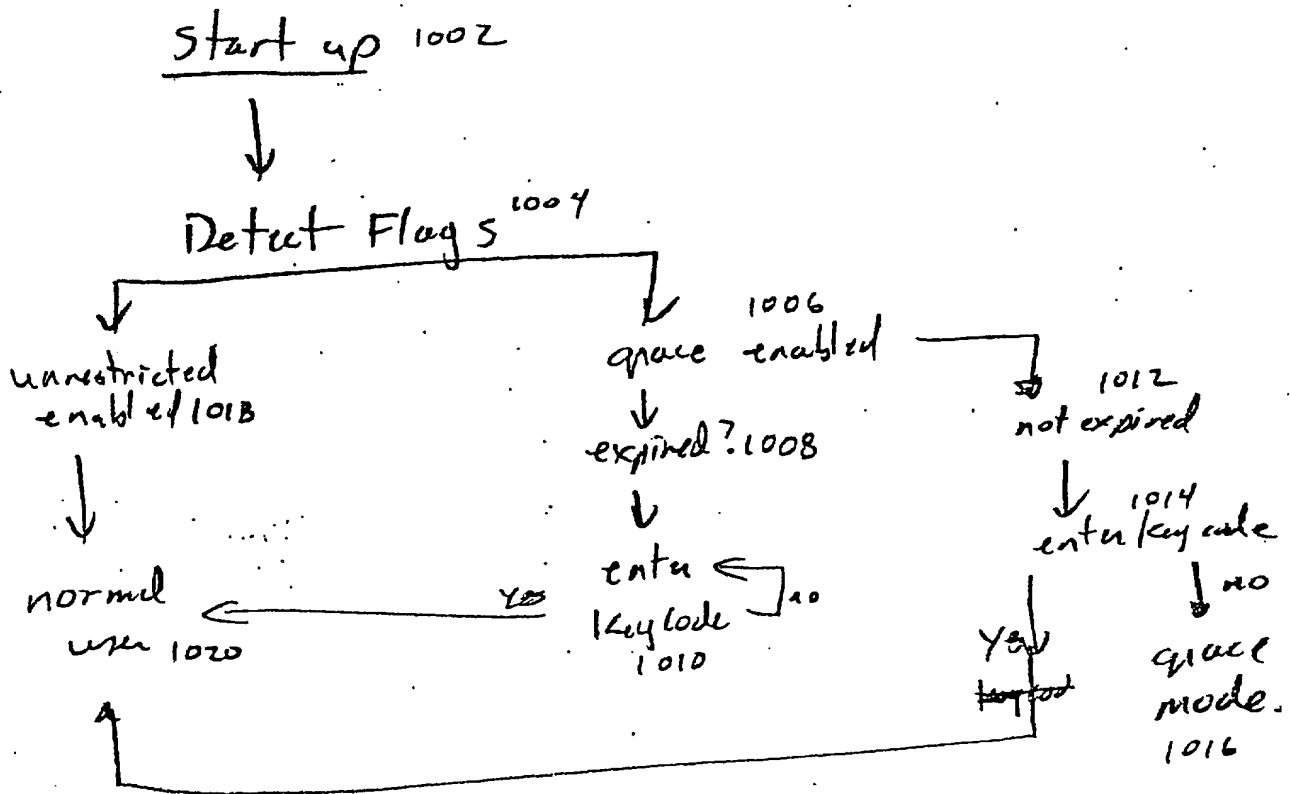 Start up 1002
Detect Flags 1004
unrestricted
enabled 1018
grace enabled
1006
expired? 1008
1012
not expired
enter
Keycode
1010
no
Yes
normal
user 1020
1014
enter key code
no
Yes
grace
mode.
1016